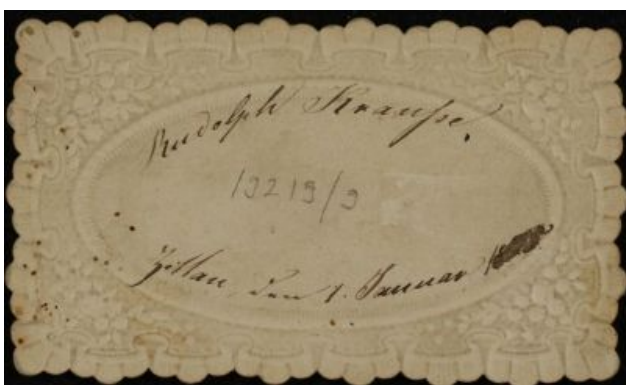 Rudolph Krauße.
19219/9
Zittau, den 1. Januar